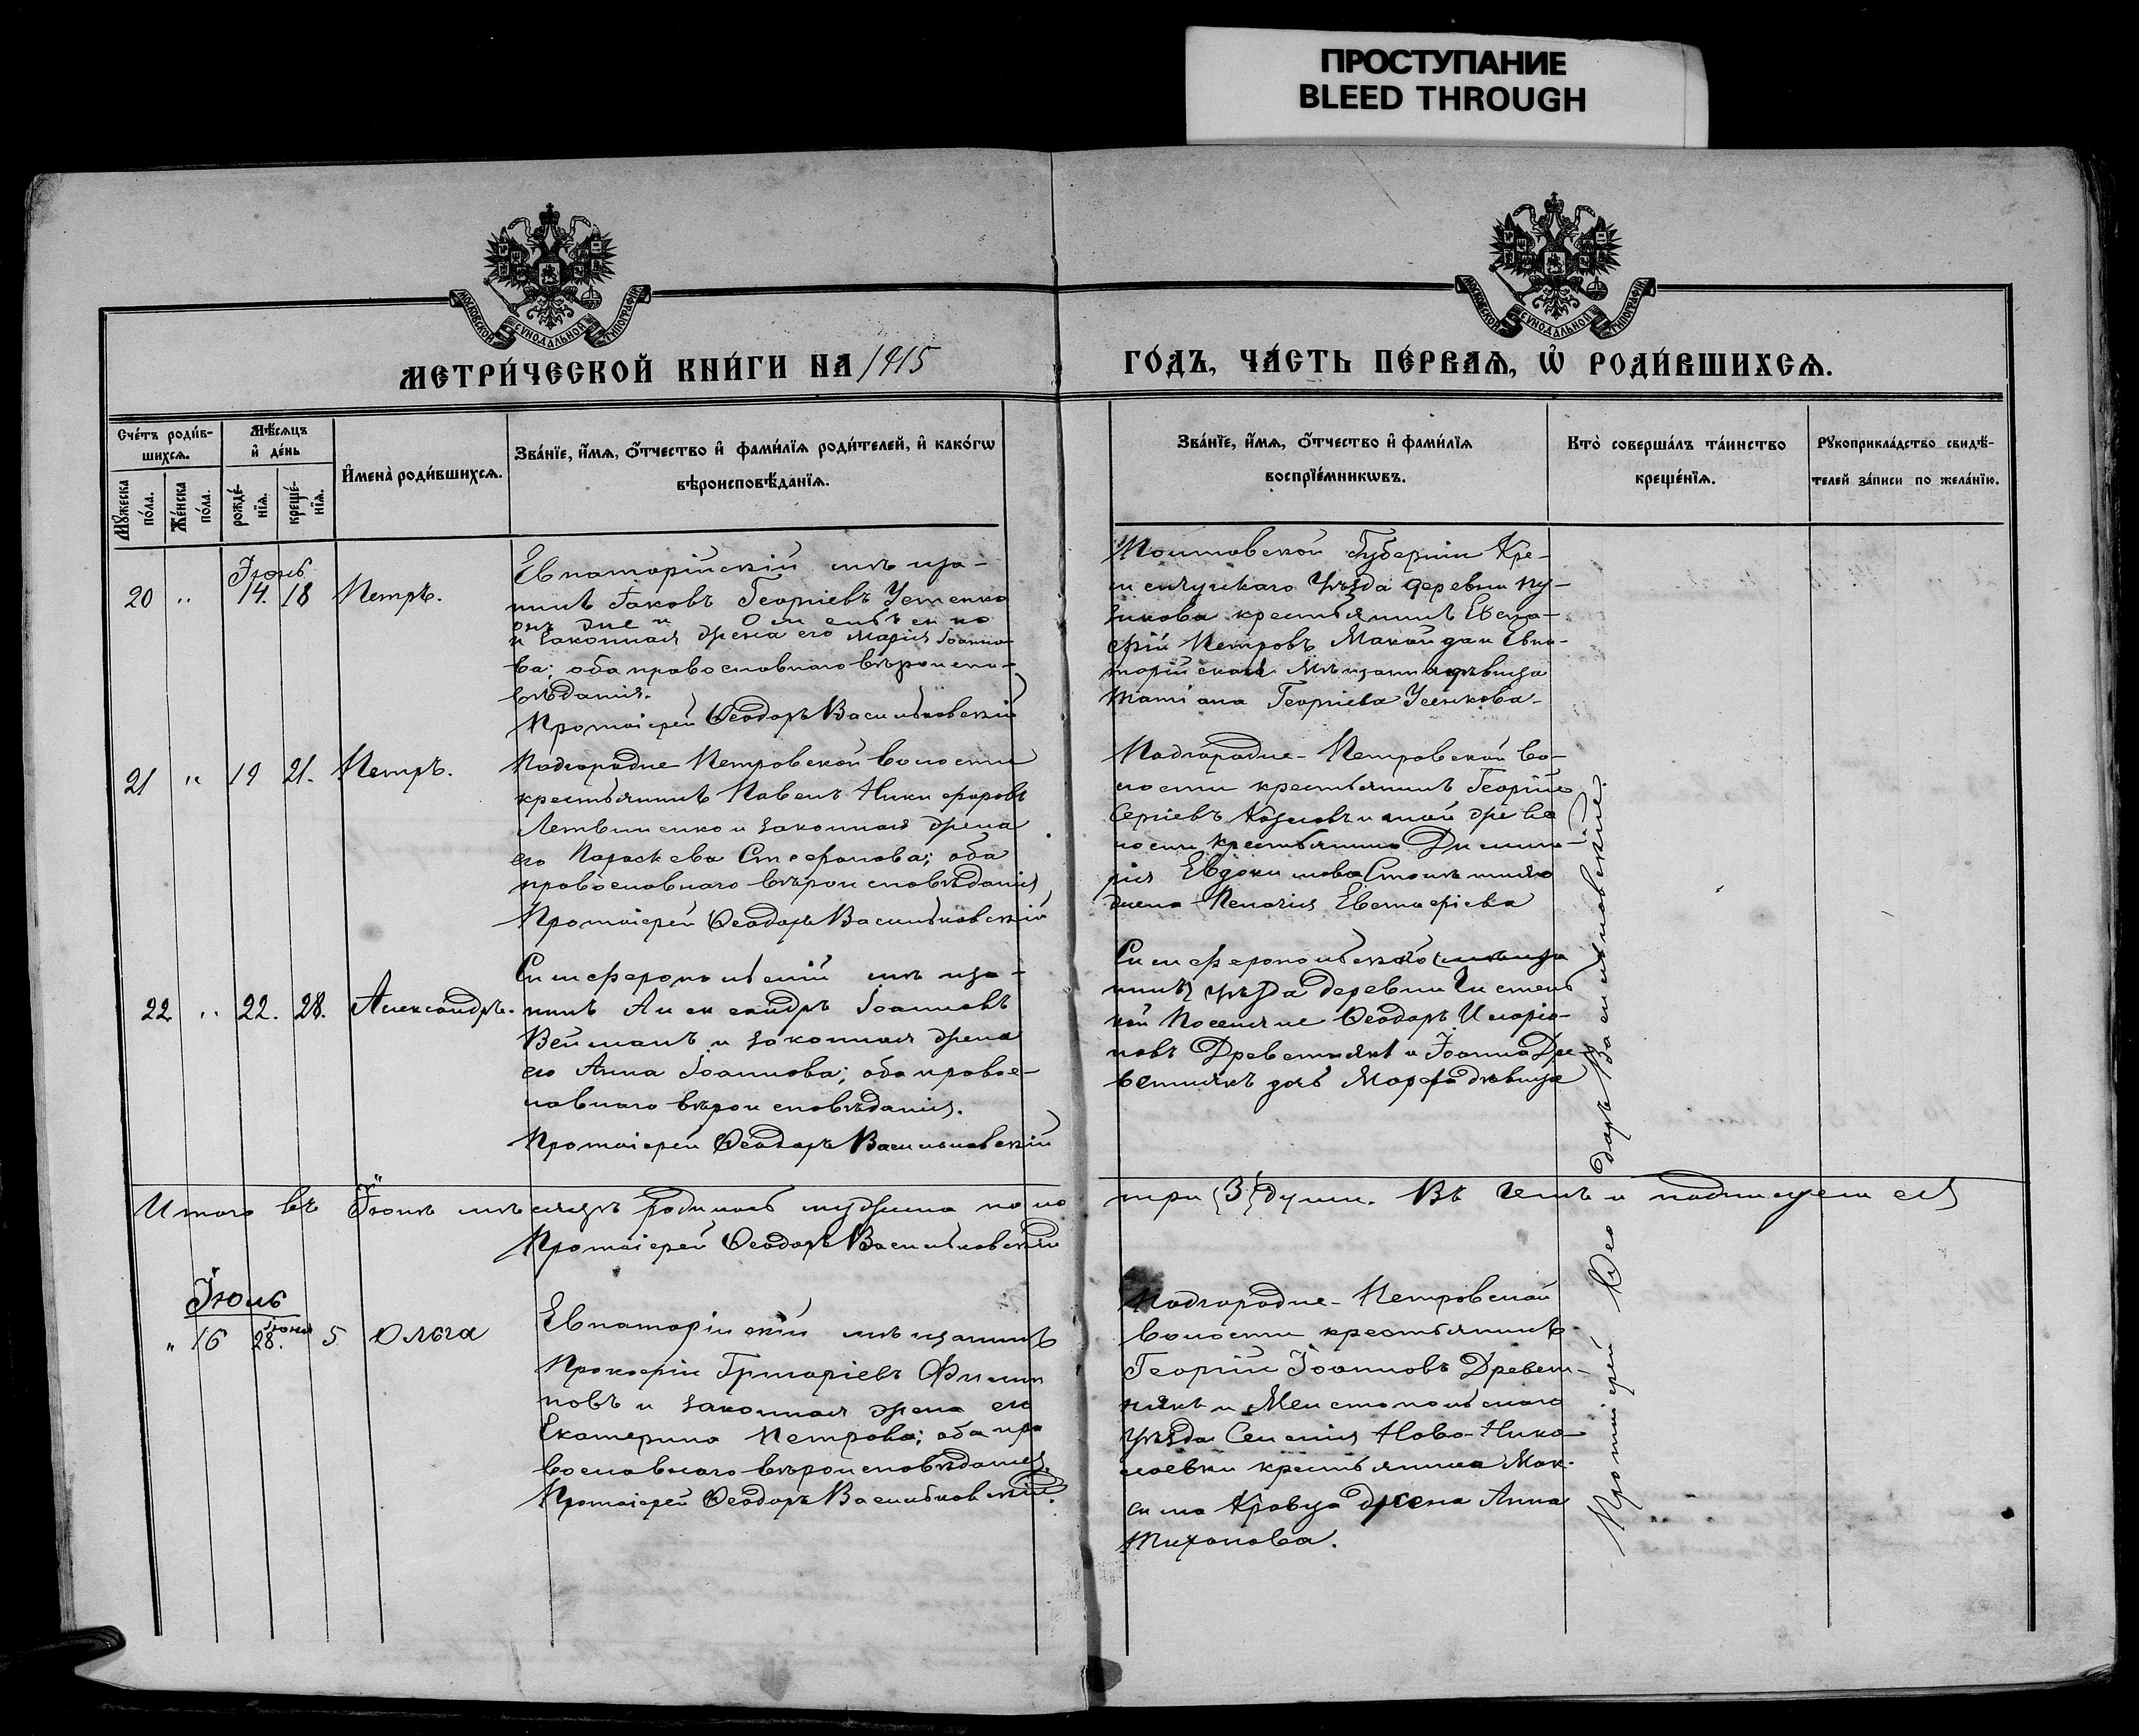 ПРОСТУПАНИЕ
BLEED THROUGH
МОСКОВСКОЙ СУНОДАЛЬНОЙ ТИПОГРАФІИ
МОСКОВСКОЙ СУНОДАЛЬНОЙ ТИПОГРАФІИ
МЕТРИ́ЧЕСКОЙ КНИ́ГИ НА 1915
ГО́ДЪ, ЧА́СТЬ ПЕ́РВАЯ, Ѡ РОДИ́ВШИХСЯ.
Сче́тъ роди́в-
шихся.
Му́жеска по́ла.
Же́нска по́ла.
Мѣ́сяцъ
и де́нь
рожде́-
нїя.
креще́-
нїя.
Имена̀ роди́вшихся.
Зва́нїе, и́мя, о́тчество и фами́лїя роди́телей, и како́гѡ
вѣроисповѣ́данїя.
Зва́нїе, и́мя, о́тчество и фами́лїя
воспрїе́мникѡвъ.
Кто̀ соверша́лъ та́инство
креще́нїя.
Рꙋкоприкла́дство свидѣ́-
телей за́писи по жела́нїю.
Іюнь
20 " 14. 18 Петръ.
Евпаторійскій мѣща-
нинъ Іаковъ Георгіевъ Усенко
онъ же и
и законная жена его Марія Іоанно-
ва; оба православнаго вѣроиспо-
вѣданія.
Протоіерей Ѳеодоръ Васильковскій
Полтавской Губерніи Кре-
менчугскаго Уѣзда деревни Пу-
зикова крестьянинъ Евста-
фій Петровъ Макойдан Евпа-
торійская Мѣщанка дѣвица
Татіана Георгіева Усенкова.
21 " 19 21. Петръ.
Подгородне-Петровской волости
крестьянинъ Павелъ Никифоровъ
Летвиненко и законная жена
его Параскева Стефанова; оба
православнаго вѣроисповѣданія
Протоіерей Ѳеодоръ Васильковскій
Подгородне-Петровской во-
лости крестьянинъ Георгій
Сергіевъ Козловъ и той же во
лости крестьянина Димит-
рія Евдокимова
жена Пелагія Евстафіева
22 " 22. 28. Александръ.
Симферопольскій мѣща-
нинъ Александръ Іоанновъ
Вейманъ и законная жена
его Анна Іоаннова; оба правос-
лавнаго вѣроисповѣданія.
Протоіерей Ѳеодоръ Васильковскій
Симферопольскаго (мѣща
нинъ) уѣзда деревни Чистень
кой Поселяне Ѳеодоръ Иларіо-
новъ Древетнякъ и Іоанна Дре-
ветнякъ дочь Марфа дѣвица
Итого въ Іюнѣ мѣсяцѣ родилось мужска пола три {3} души. Въ чемъ и подписуемся
Протоіерей Ѳеодоръ Васильковскій
Іюль
" 16 28. іюня 5 Ольга
Евпаторійскій мѣщанинъ
Прокофій Григоріевъ Филип
повъ и законная жена его
Екатерина Петрова; оба пра
вославнаго вѣроисповѣданія.
Протоіерей Ѳеодоръ Васильковскій.
Подгородне-Петровской
волости крестьянинъ
Георгій Іоанновъ Древет-
някъ и Мелитопольскаго
уѣзда Селенія Ново-Нико-
лаевки крестьянина Мак-
сима Кравца жена Анна
Тихонова.
Протоіерей Ѳеодоръ Васильковскій.